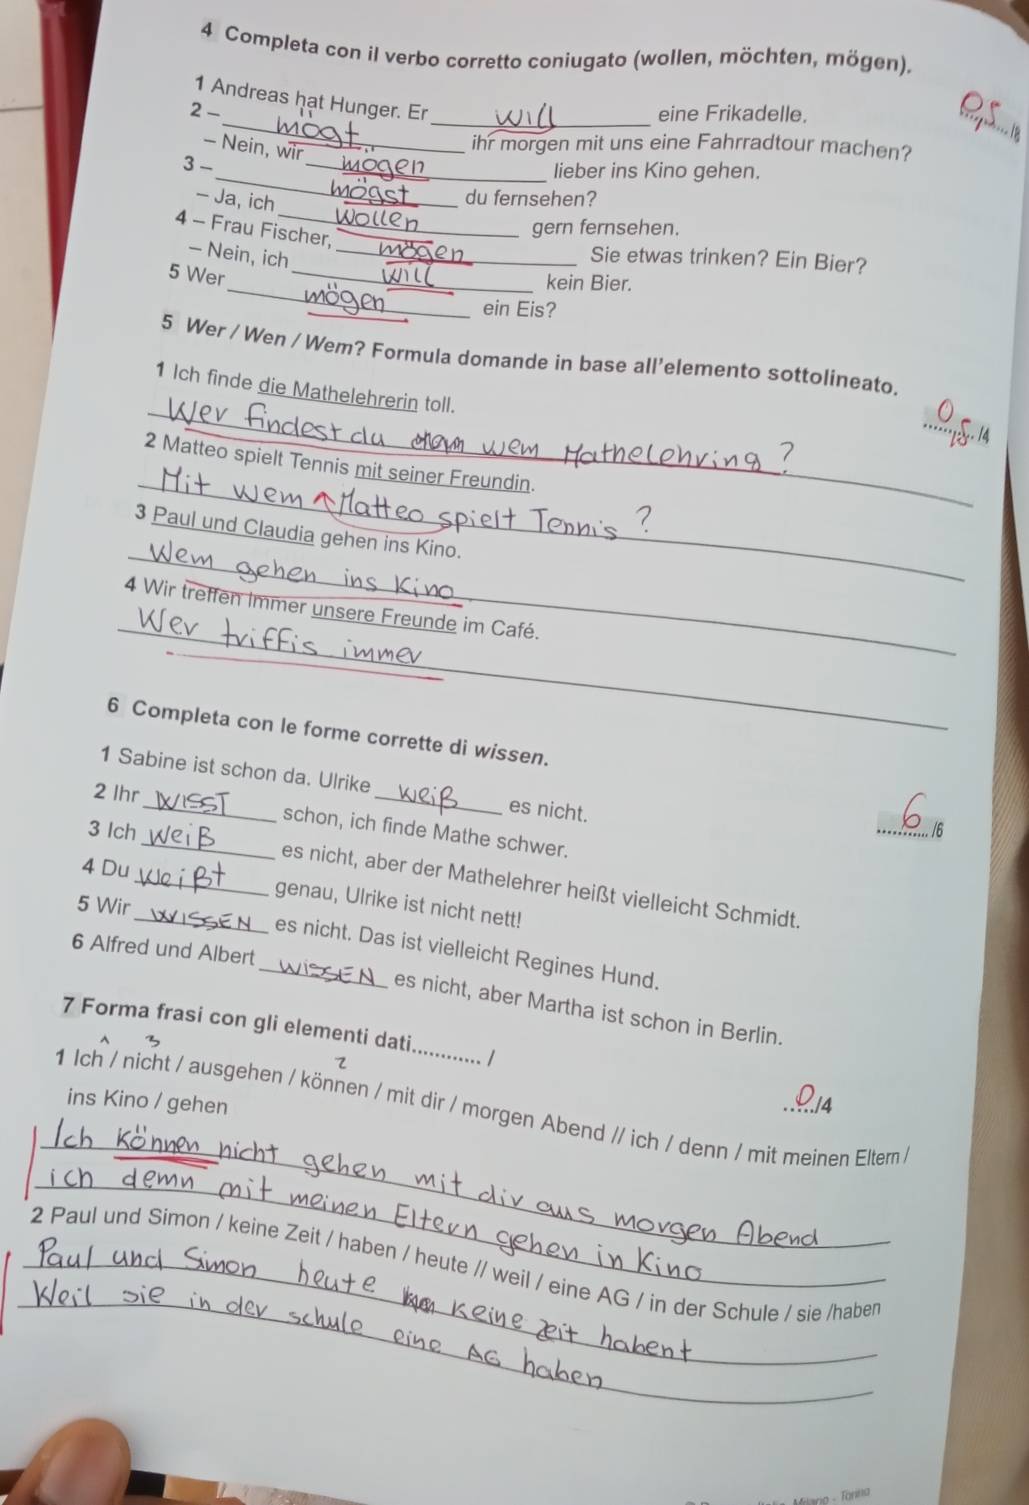 4 Completa con il verbo corretto coniugato (wollen, möchten, mögen).
1 Andreas hat Hunger. Er will eine Frikadelle.
/8
2 – mögt ihr morgen mit uns eine Fahrradtour machen?
– Nein, wir mögen lieber ins Kino gehen.
3 – mögst du fernsehen?
– Ja, ich wollen gern fernsehen.
4 – Frau Fischer, mögen Sie etwas trinken? Ein Bier?
– Nein, ich will kein Bier.
5 Wer mögen ein Eis?
5 Wer / Wen / Wem? Formula domande in base all'elemento sottolineato.
1 Ich finde die Mathelehrerin toll.
/4
Wer findest du wem Mathelehring?
2 Matteo spielt Tennis mit seiner Freundin.
Mit wem Matteo spielt Tennis?
3 Paul und Claudia gehen ins Kino.
Wem gehen ins Kino
4 Wir treffen immer unsere Freunde im Café.
Wer triffis immer
6 Completa con le forme corrette di wissen.
1 Sabine ist schon da. Ulrike weiß es nicht.
6/6
2 Ihr WISST schon, ich finde Mathe schwer.
3 Ich weiß es nicht, aber der Mathelehrer heißt vielleicht Schmidt.
4 Du weißt genau, Ulrike ist nicht nett!
5 Wir WISSEN es nicht. Das ist vielleicht Regines Hund.
6 Alfred und Albert WISSEN es nicht, aber Martha ist schon in Berlin.
7 Forma frasi con gli elementi dati............ /
3 2
0/4
1 Ich / nicht / ausgehen / können / mit dir / morgen Abend // ich / denn / mit meinen Eltern /
ins Kino / gehen
Ich können nicht gehen mit dir aus morgen Abend
ich demn mit meinen Eltern gehen in Kino
2 Paul und Simon / keine Zeit / haben / heute // weil / eine AG / in der Schule / sie /haben
Paul und Simon heute keine zeit habent
Weil sie in der schule eine AG haben
Milano - Torino